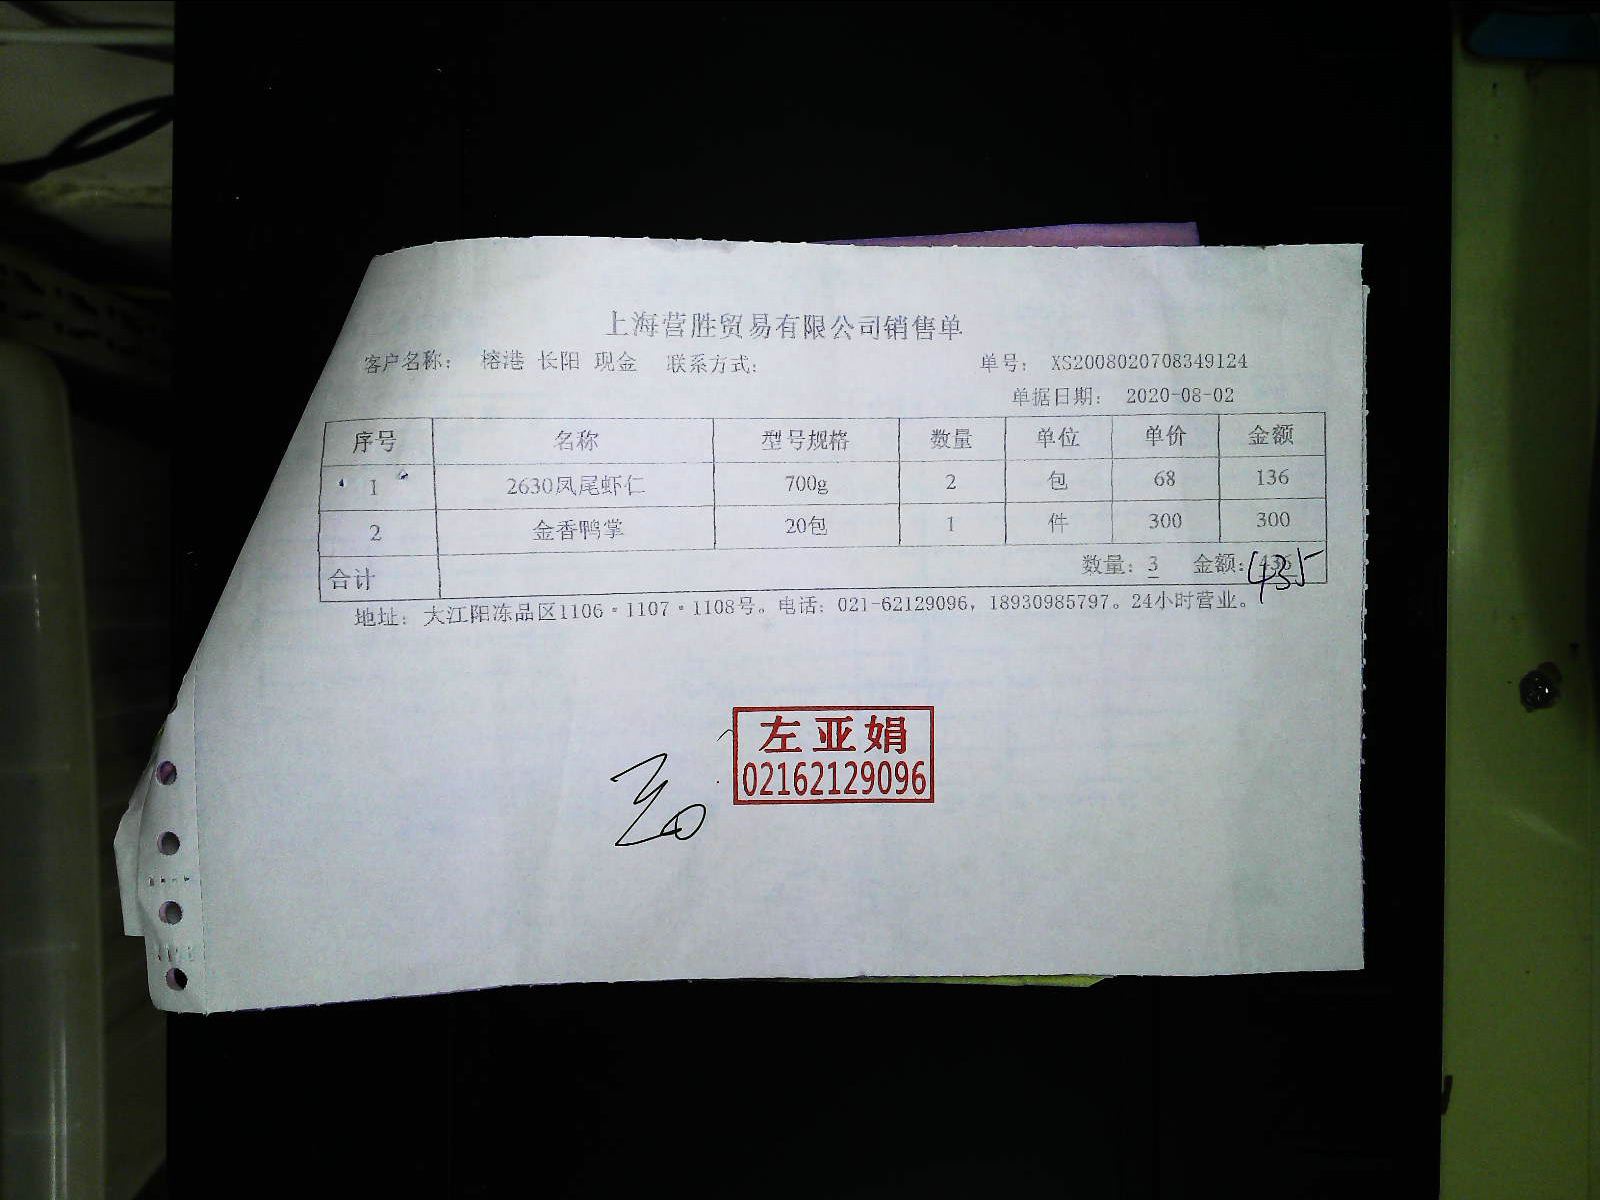 上海营胜贸易有限公司销售单
客户名称： 榕港 长阳 现金 联系方式： 单号： XS2008020708349124
单据日期： 2020-08-02
序号 名称 型号规格 数量 单位 单价 金额
1 2630凤尾虾仁 700g 2 包 68 136
2 金香鸭掌 20包 1 件 300 300
合计 数量：3 金额：435
地址：大江阳冻品区1106·1107·1108号。电话：021-62129096，18930985797。24小时营业。
左亚娟
02162129096